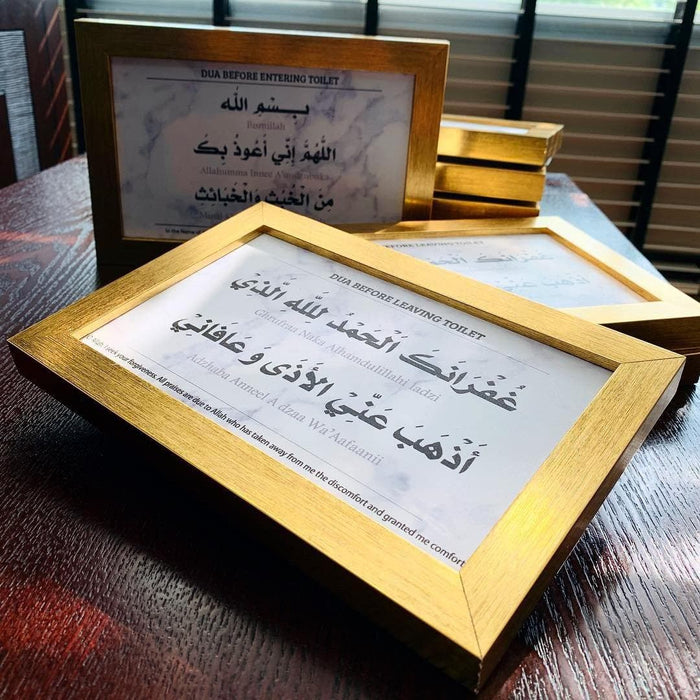 DUA BEFORE ENTERING TOILET
بِسْمِ اللّٰه
Bismillah
اللَّهُمَّ إِنِّي أَعُوذُ بِكَ
Allahumma Innee
مِنَ الْخُبُثِ وَالْخَبَائِثِ
In the Name of
BEFORE LEAVING TOILET
غُفْرَانَكَ
DUA BEFORE LEAVING TOILET
غُفْرَانَكَ الْحَمْدُ لِللّٰهِ الَّذِيْ
Ghufraa Naka Alhamdulillahi ladzi
أَذْهَبَ عَنِّيْ الأَذَى وَ عَافَانِيْ
Adzhaba Anneel A dzaa Wa'Aafaanii
I seek your forgiveness. All praises are due to Allah who has taken away from me the discomfort and granted me comfort